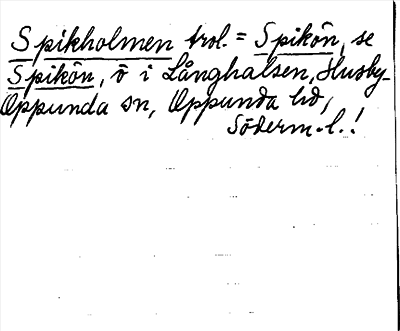 Spikholmen trol. = Spikön, se
Spikön, ö i Långhalsen, Husby-
Oppunda sn, Oppunda hd,
Söderm.l.!